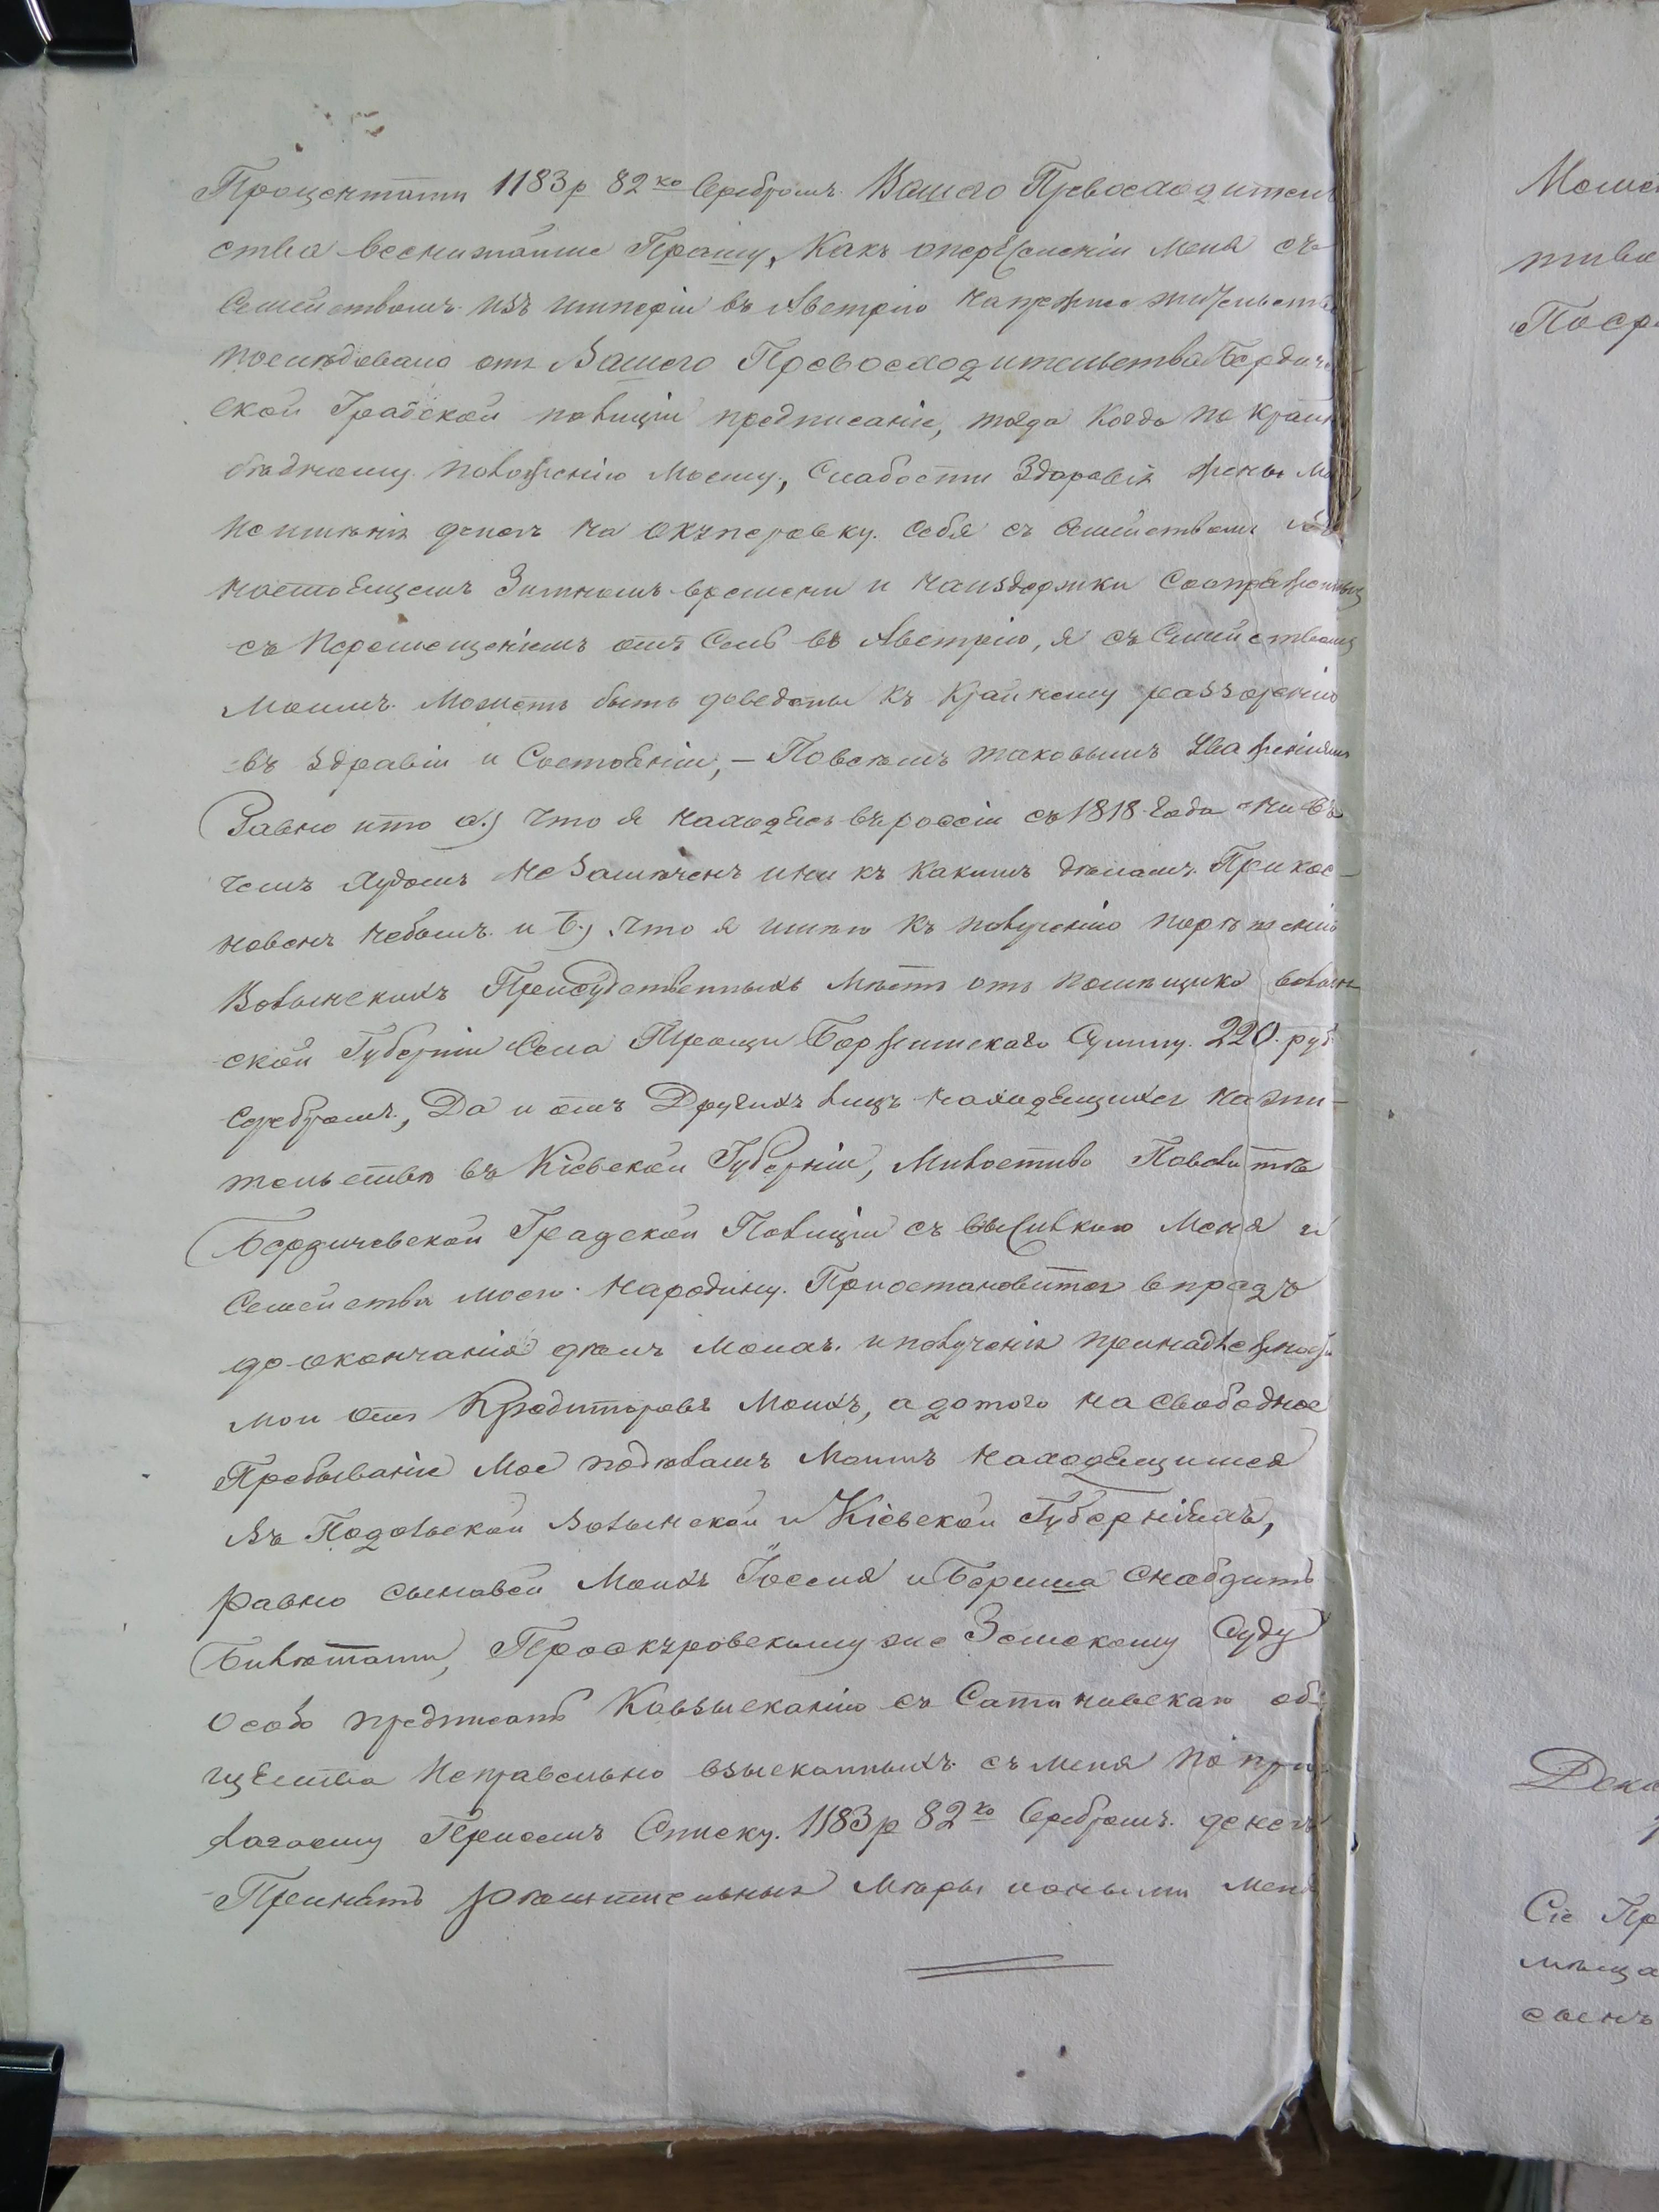 Процентами 1183 р 82 ко Серебромъ. Вашего Превосходитель
ства всенижайше Прошу, Какъ опереселеніи Меня съ
Семействомъ изъ имперіи въ Австрію напрежнее жительство
последовало отъ Вашего Превосходительства Бердичев
ской Градской полиціи предписаніе, тогда Когда по край
бедному положенію Моему, Слабости Здоровія жены Мо
неименія денегъ на екъперовку Себя съ Семействомъ
настоещемъ Зимнемъ времени и наиздержки Сопраженныхъ
съ Перемещеніемъ отъ Сель въ Австрію, я съ Семействомъ
Моимъ Можетъ быть доведены Къ Крайнему разъоренію
въ здравіи и Состоеніи, — Повсемъ таковымъ Уваженіямъ
Равно что а.) Что я находясь въроссіи съ 1818 года Ни въ
чемъ Худомъ не Замеченъ ини къ какимъ деламъ Прикос-
новенъ небылъ и б.) Что я имею Къ полученію порѣшенію
Волынскихъ Присудственныхъ Местъ отъ помещика волын
ской Губерніи Села Прощи Боржимскаго Сумму 220 руб
Серебромъ, Да и отъ Другихъ лицъ находещихся нажи-
тельстве въ Кіевской Губерніи, Милостиво Повелите
Бердичевской Градской Полиціи съ высилкою Меня и
Семейства моего народину Приостановится впредъ
до окончанія делъ Моихъ и полученія принадлежност
мои отъ Кредиторовъ Моихъ, а дотого на Свободное
Пребываніе Мое поделамъ Моимъ находещимся
Въ Подольской Волынской и Кіевской Губерніяхъ,
равно сыновей Моихъ Іоселя и Бериша Снабдить
Билетами, Проскъровскому же Земскому Суду
Особо предписать Ковзысканію съ Сатановскаго об
щества Неправельно взысканныхъ съ меня по при
лагаему Присемъ Списку. 1183 р 82 ко Серебромъ денегъ
Принять решительныя Меры и оными Меня
Деко
Сіе Пр
меща
сынъ